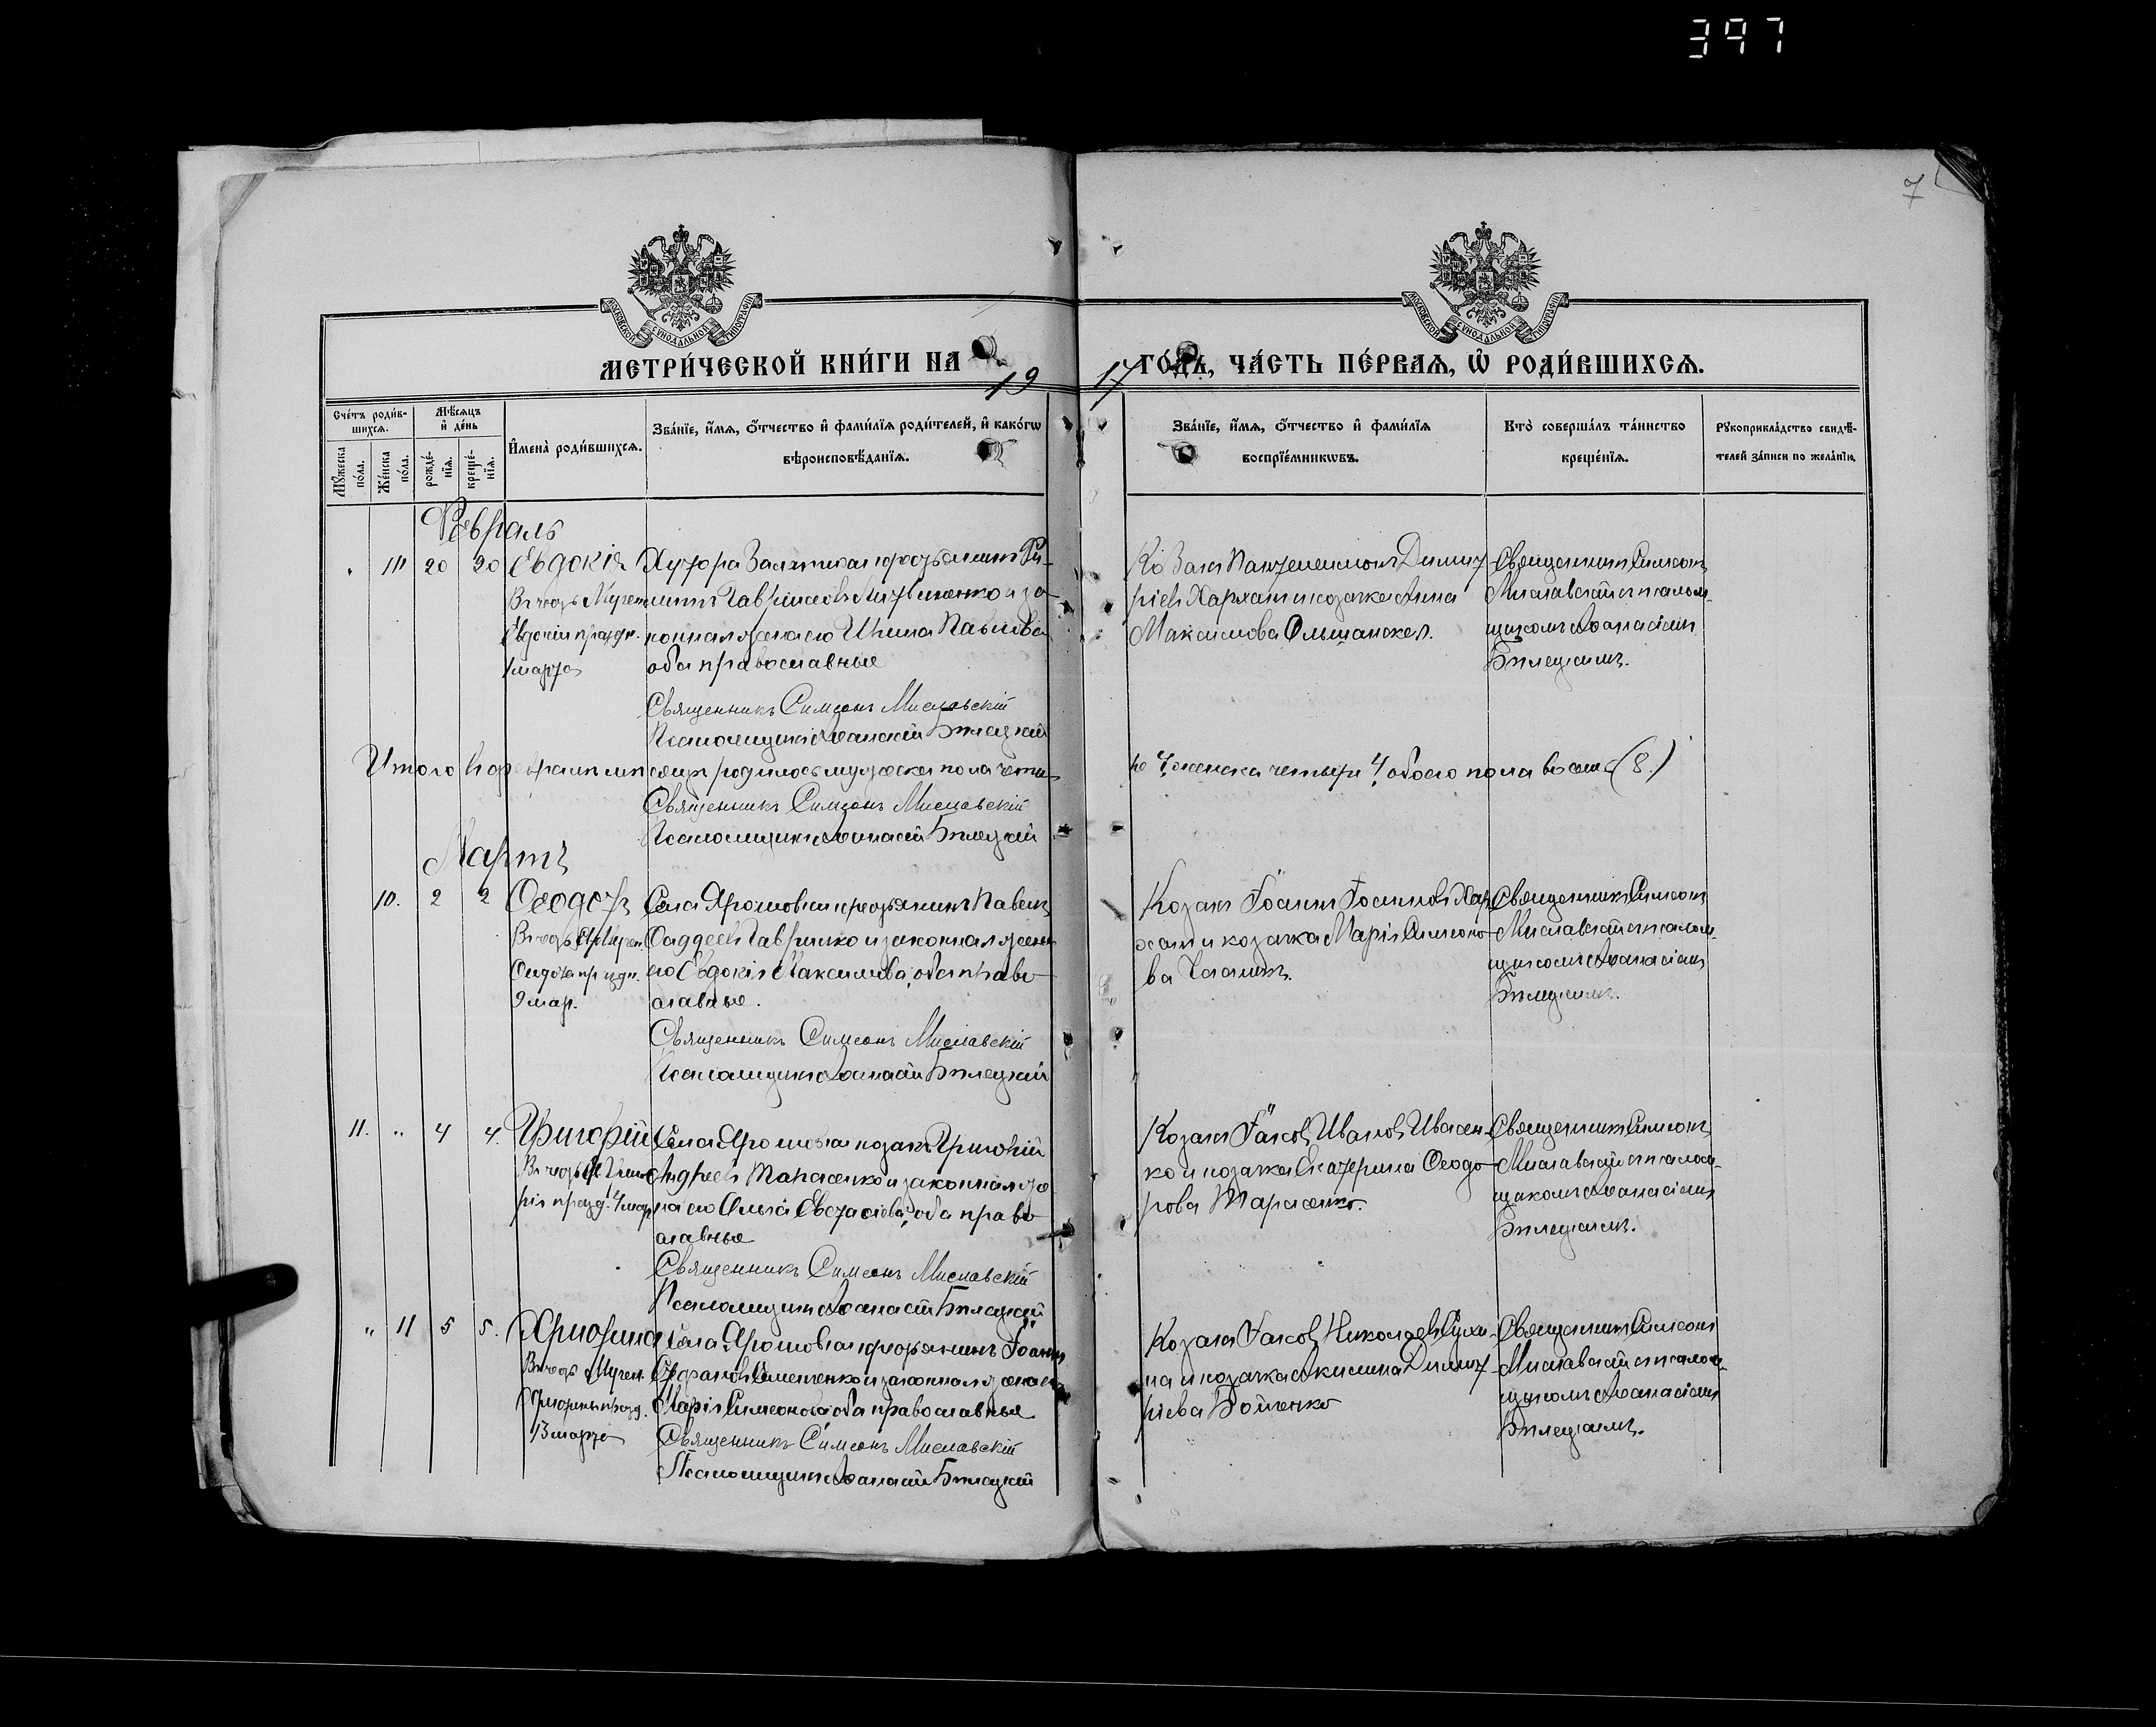 397
7
МОСКОВСКОЙ СУНОДАЛЬНОЙ ТИПОГРАФІИ
МОСКОВСКОЙ СУНОДАЛЬНОЙ ТИПОГРАФІИ
МЕТРИ́ЧЕСКОЙ КНИ́ГИ НА 19
17 ГО́ДЪ, ЧА́СТЬ ПЕ́РВАЯ, Ѡ҆ РОДИ́ВШИХСЯ.
Сче́тъ роди́в-
шихся.
Мѣ́сяцъ
и҆ де́нь
Му́жеска
по́ла.
Же́нска
по́ла.
рожде́-
нїя.
креще́-
нїя.
И҆мена̀ роди́вшихся.
Зва́нїе, и҆́мя, о҆́тчество и҆ фами́лїя роди́телей, и҆ како́гѡ
вѣроисповѣ́данїя.
Зва́нїе, и҆́мя, о҆́тчество и҆ фами́лїя
воспрїе́мникѡвъ.
Кто̀ соверша́лъ та́инство
креще́нїя.
Рукоприкла́дство свидѣ́-
телей за́писи по жела́нїю.
Февраль
20 20 Евдокія
Въ честь Мучен.
Евдокіи праздн.
1 марта
Хутора крестьянинъ Фи-
липпъ Гавріиловъ Литвиненко и за-
конная жена его Ирина Павлова
оба православные
Священникъ Симеонъ Миславскій
Псаломщикъ Аѳанасій Бѣлецкій
Козакъ Пантелеимонъ Димит-
ріевъ и козачка Анна
Максимова Ольшанская.
Священникъ Симеонъ
Миславскій съ псалом-
щикомъ Аѳанасіемъ
Бѣлецкимъ.
Итого въ февралѣ мѣсяцѣ родилось мужеска пола четы-
ре 4, женска четыре 4, обоего пола восемь (8.)
Священникъ Симеонъ Миславскій
Псаломщикъ Аѳанасій Бѣлецкій
Мартъ
10. 2 2
Въ честь Св. Мучен.
праздн.
9 мар.
Села Ярошовки крестьянинъ Павелъ
Ѳаддеевъ Гавришко и законная жена
его Евдокія Максимова, оба право-
славные.
Священникъ Симеонъ Миславскій
Псаломщикъ Аѳанасій Бѣлецкій
Козакъ Іоаннъ Іоанновъ Хар-
и козачка Марія Симеоно-
ва
Священникъ Симеонъ
Миславскій съ псалом-
щикомъ Аѳанасіемъ
Бѣлецкимъ.
11. " 4 4. Григорій
Въ честь Св. Григо-
рія празд. 4 мар.
Села Ярошовки козакъ Григорій
Андреевъ Тарасенко и законная же-
на его Ольга Евстафіева, оба право-
славные
Священникъ Симеонъ Миславскій
Псаломщикъ Аѳанасій Бѣлецкій
Козакъ Іаковъ Ивановъ Ивасен-
ко и козачка Екатерина Ѳеодо-
рова Тарасенко.
Священникъ Симеонъ
Миславскій съ псалом-
щикомъ Аѳанасіемъ
Бѣлецкимъ.
" 11 5 5. Христина
Въ честь Мучен.
Христины празд.
13 марта
Села Ярошовки крестьянинъ Іоаннъ
Стефановъ и законная жена его
Марія Симеонова оба православные
Священникъ Симеонъ Миславскій
Псаломщикъ Аѳанасій Бѣлецкій
Козакъ Іаковъ Николаевъ
и козачка Акилина Димит-
ріева Бойченко
Священникъ Симеонъ
Миславскій съ псалом-
щикомъ Аѳанасіемъ
Бѣлецкимъ.